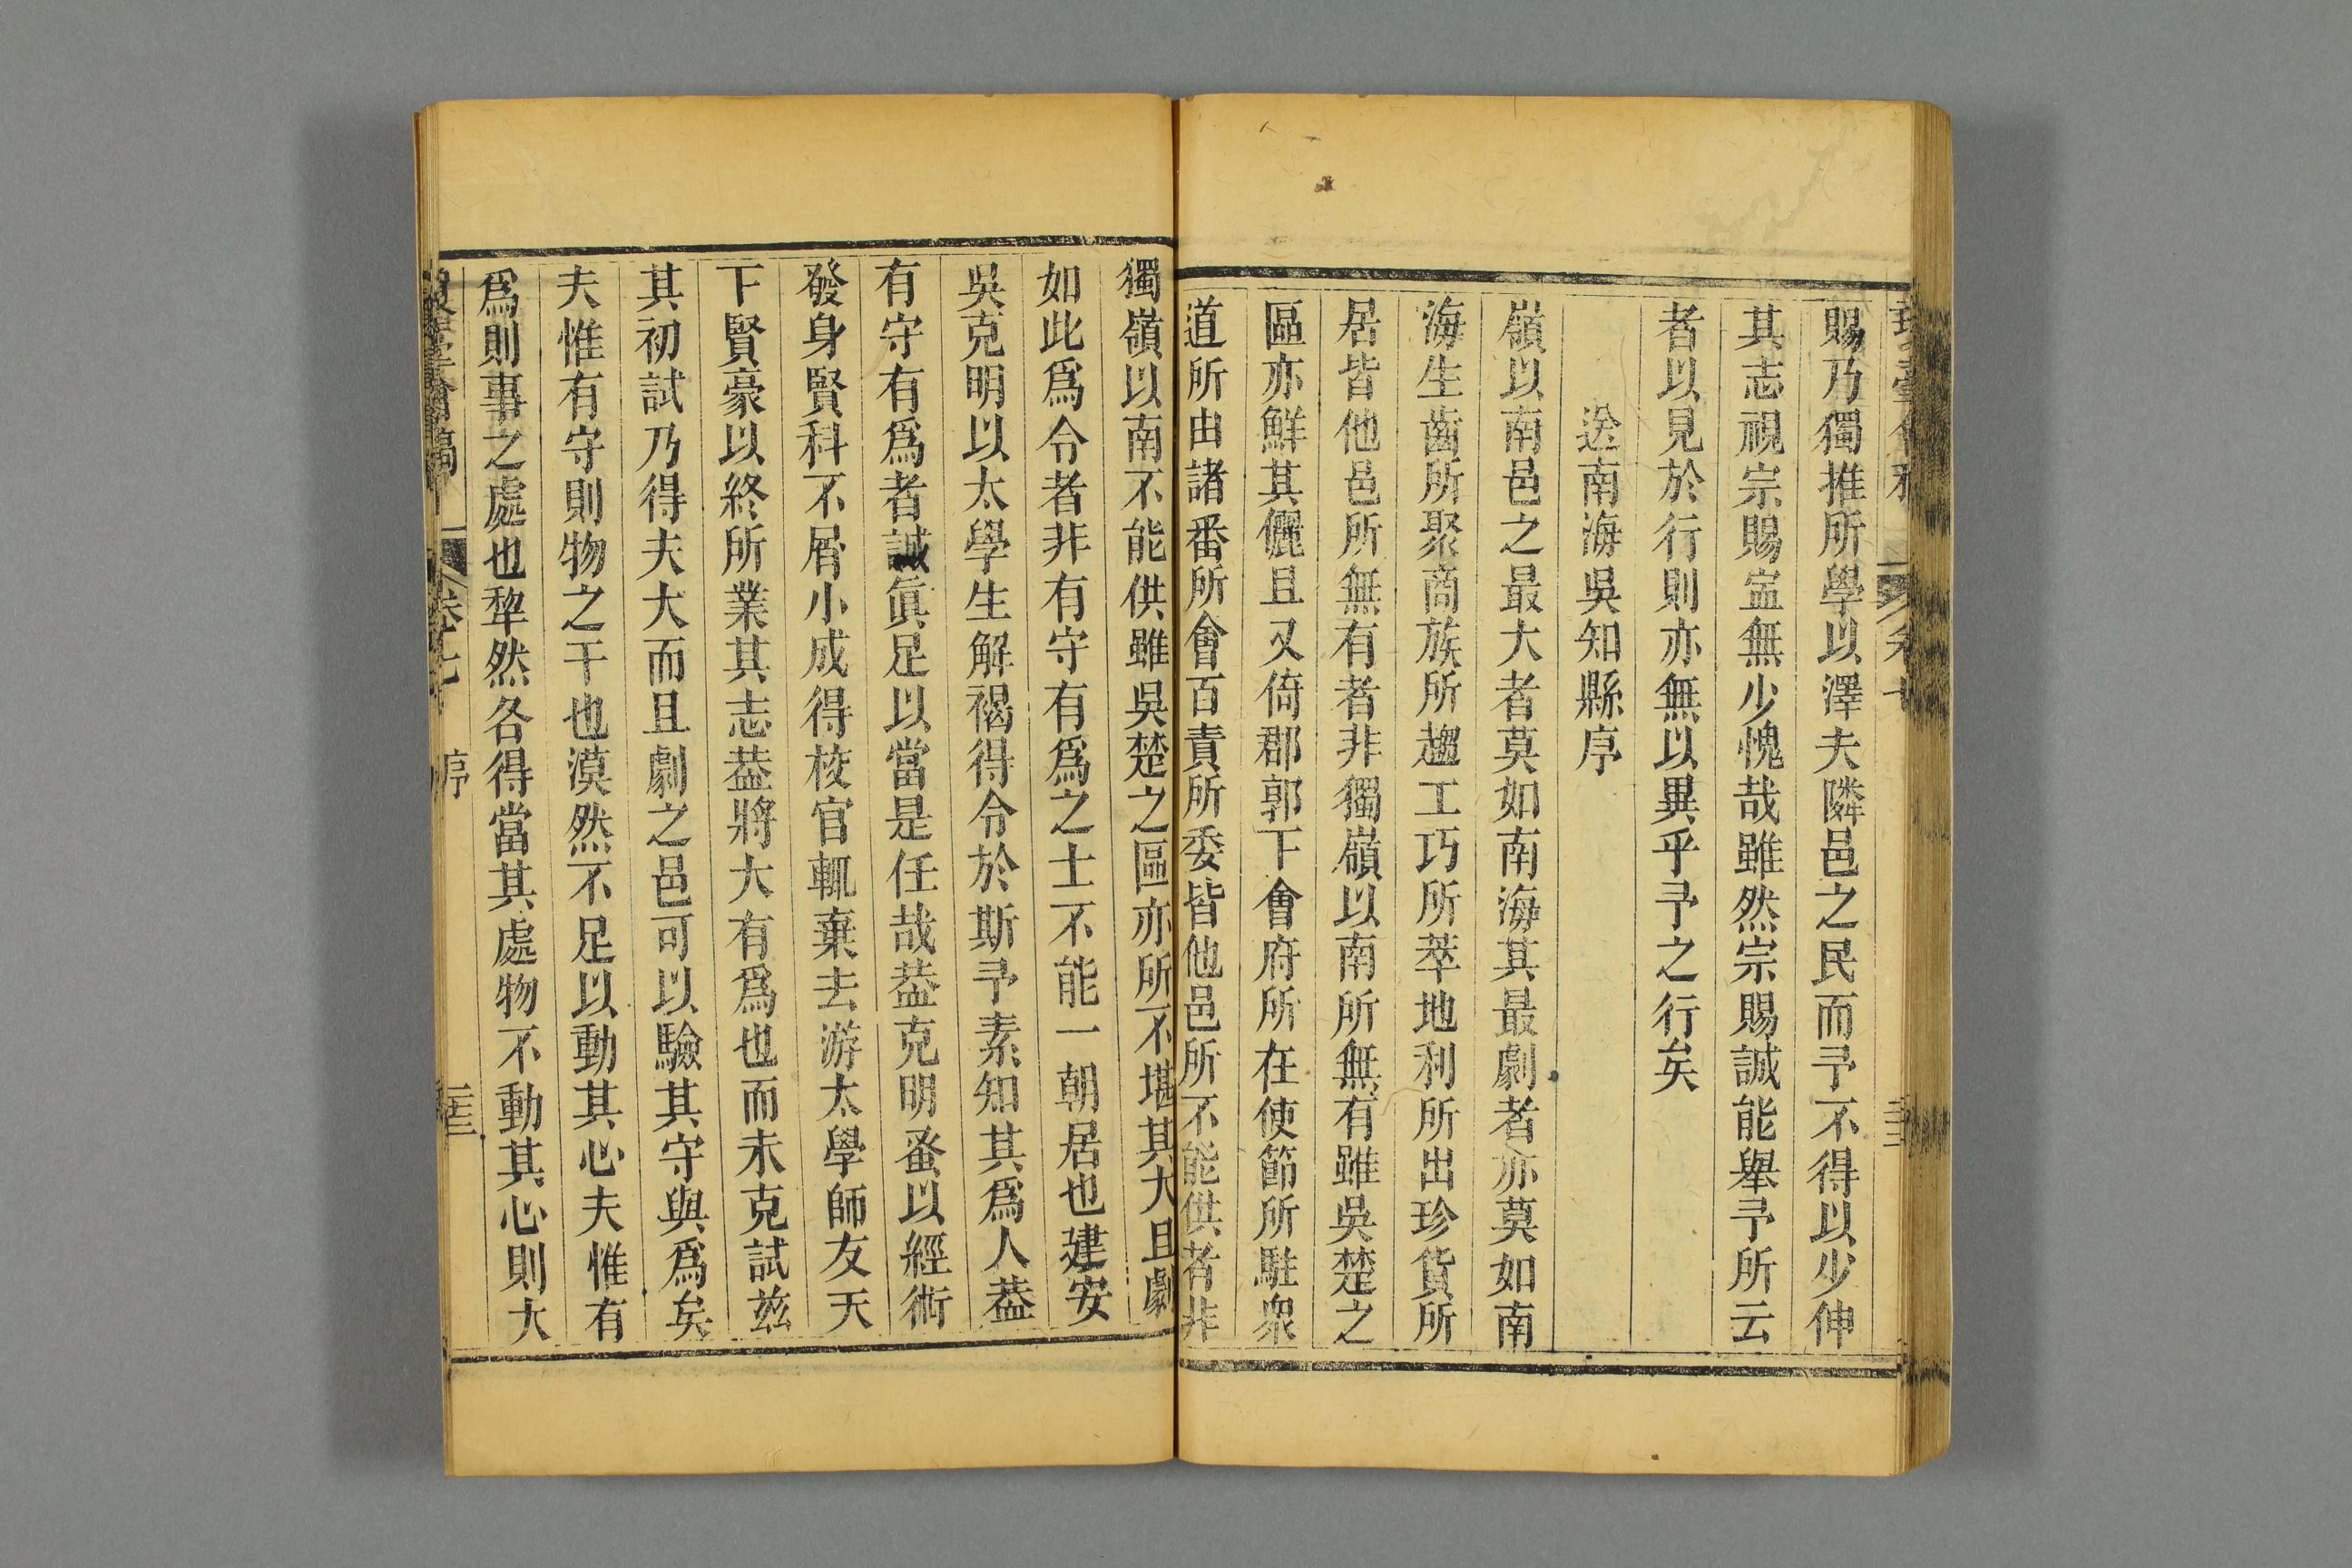 賜乃獨推所學以澤夫隣邑之民而予不得以少伸
其志視宗賜寍無少愧哉雖然宗賜誠能舉予所云
者以見於行則亦無以異乎予之行矣
送南海吳知縣序
嶺以南邑之最大者莫如南海其最劇者亦莫如南
海生齒所聚商族所趨工巧所萃地利所出珍貨所
居皆他邑所無有者非獨嶺以南所無有雖吳楚之
區亦鮮其儷且又倚郡郭下會府所在使節所駐衆
道所由諸番所會百責所委皆他邑所不能供者非
獨嶺以南不能供雖吳楚之區亦所不堪其大且劇
如此爲令者非有守有爲之士不能一朝居也建安
吳克明以太學生解褐得令於斯予素知其爲人葢
有守有爲者誠眞足以當是任哉葢克明蚤以經術
發身賢科不屑小成得校官輒棄去游太學師友天
下賢豪以終所業其志葢將大有爲也而未克試兹
其初試乃得夫大而且劇之邑可以驗其守與爲矣
夫惟有守則物之干也漠然不足以動其心夫惟有
爲則事之處也犂然各得當其處物不動其心則大
卷七
序